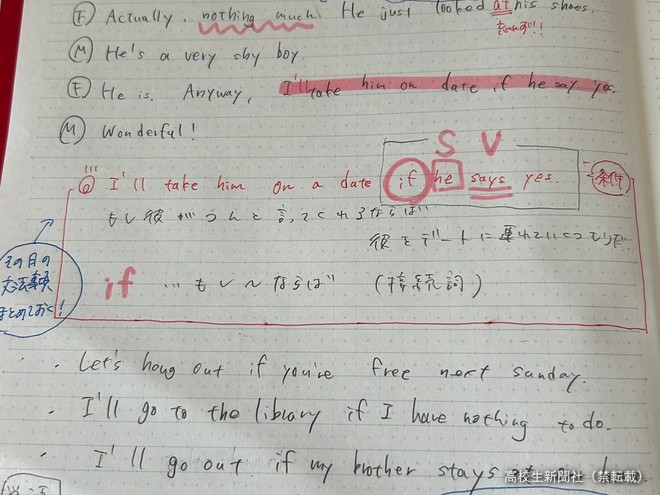 Ⓕ Actually, nothing much. He just looked at his shoes.
Ⓜ He's a very shy boy
Ⓕ He is. Anyway, I'll take him on date if he say yes.
Ⓜ Wonderful!
S V
I'll take him on a date if he says yes.
条件
もし彼がうんと言ってくれるならば
彼をデートに連れていくつもりだ
その日の
文法事項
まとめておく!
if …もし〜ならば (接続詞)
・Let's hang out if you're free next sunday.
・I'll go to the library if I have nothing to do.
・I'll go out if my brother stays at
高校生新聞社(禁転載)